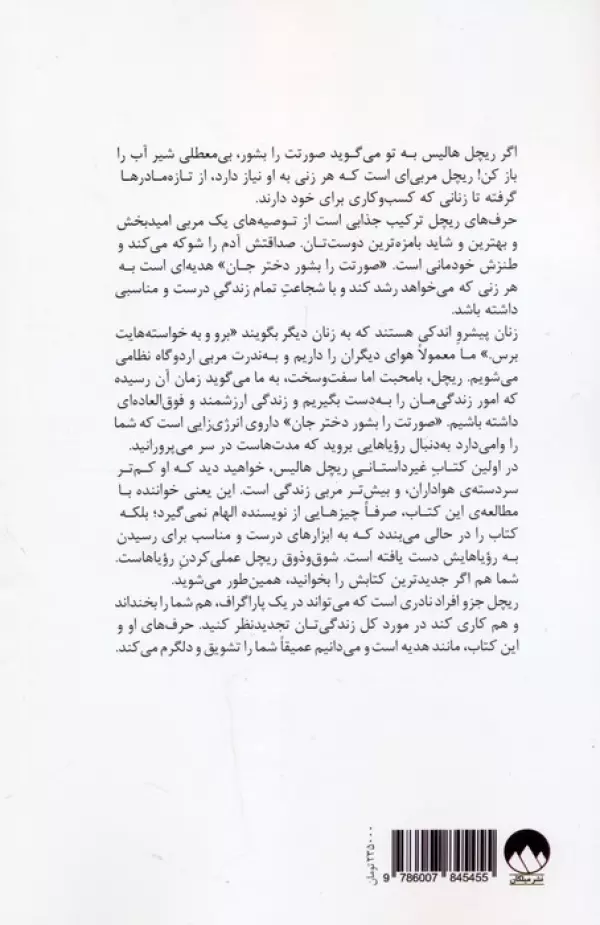 اگر ریچل هالیس به تو می‌گوید صورتت را بشور، بی‌معطلی شیر آب را
باز کن! ریچل مربی‌ای است که هر زنی به او نیاز دارد، از تازه‌مادرها
گرفته تا زنانی که کسب‌وکاری برای خود دارند.
حرف‌های ریچل ترکیب جذابی است از توصیه‌های یک مربی امیدبخش
و بهترین و شاید بامزه‌ترین دوست‌تان. صداقتش آدم را شوکه می‌کند و
طنزش خودمانی است. «صورتت را بشور دختر جان» هدیه‌ای است به
هر زنی که می‌خواهد رشد کند و با شجاعتِ تمام زندگیِ درست و مناسبی
داشته باشد.
زنان پیشروِ اندکی هستند که به زنان دیگر بگویند «برو و به خواسته‌هایت
برس.» ما معمولاً هوای دیگران را داریم و به‌ندرت مربی اردوگاه نظامی
می‌شویم. ریچل، بامحبت اما سفت‌وسخت، به ما می‌گوید زمان آن رسیده
که امور زندگی‌مان را به‌دست بگیریم و زندگی ارزشمند و فوق‌العاده‌ای
داشته باشیم. «صورتت را بشور دختر جان» داروی انرژی‌زایی است که شما
را وامی‌دارد به‌دنبال رؤیاهایی بروید که مدت‌هاست در سر می‌پرورانید.
در اولین کتابِ غیرداستانیِ ریچل هالیس، خواهید دید که او کم‌تر
سردسته‌ی هواداران، و بیش‌تر مربی زندگی است. این یعنی خواننده با
مطالعه‌ی این کتاب، صرفاً چیزهایی از نویسنده الهام نمی‌گیرد؛ بلکه
کتاب را در حالی می‌بندد که به ابزارهای درست و مناسب برای رسیدن
به رؤیاهایش دست یافته است. شوق‌وذوق ریچل عملی‌کردنِ رؤیاهاست.
شما هم اگر جدیدترین کتابش را بخوانید، همین‌طور می‌شوید.
ریچل جزو افراد نادری است که می‌تواند در یک پاراگراف، هم شما را بخنداند
و هم کاری کند در مورد کل زندگی‌تان تجدیدنظر کنید. حرف‌های او و
این کتاب، مانند هدیه است و می‌دانیم عمیقاً شما را تشویق و دلگرم می‌کند.
۲۳۵۰۰۰ تومان
9 786007 845455
نشر میلکان